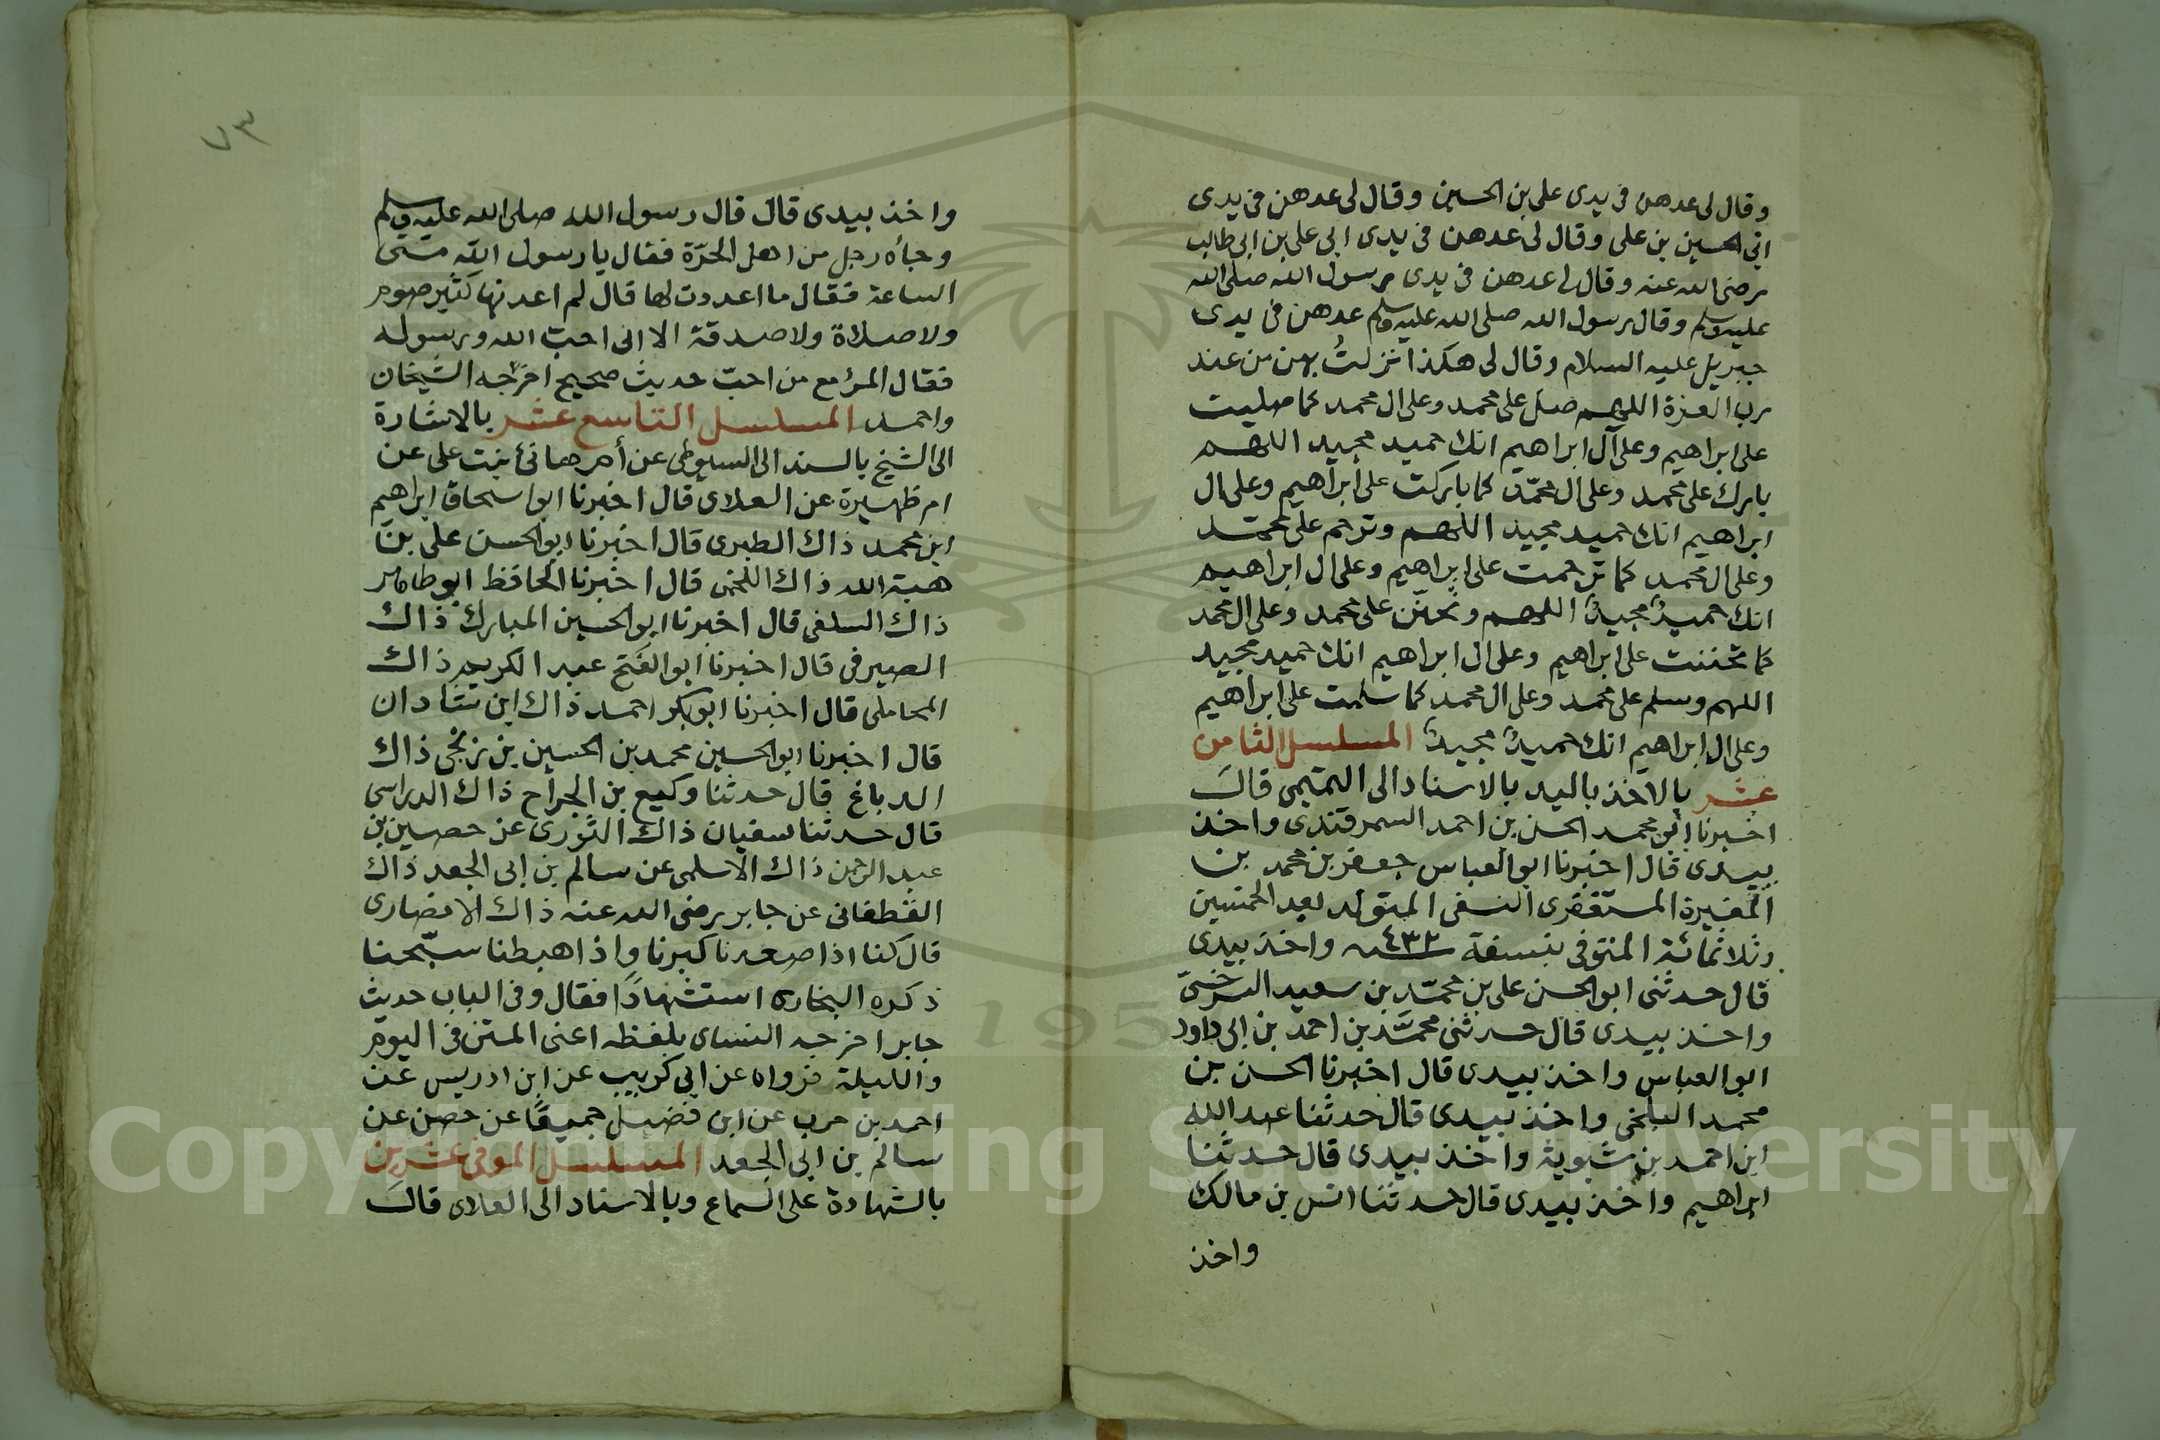 وقال لى عدهن فى يدى على بن الحسين وقال لى عدهن فى يدى
ابى الحسين بن على وقال لى عدهن فى يدى ابى على بن ابى طالب
رضى الله عنه وقال لى عدهن فى يدى رسول الله صلى الله
عليه وسلم وقال رسول الله صلى الله عليه وسلم عدهن فى يدى
جبريل عليه السلام وقال لى هكذا نزلتُ بهن من عند
رب العزة اللهم صل على محمد وعلى ال محمد كما صليت
على ابراهيم وعلى آل ابراهيم انك حميد مجيد اللهم
بارك على محمد وعلى ال محمّد كما باركت على ابراهيم وعلى ال
ابراهيم انك حميد مجيد اللهم وترحم على محمّد
وعلى ال محمد كما ترحمت على ابراهيم وعلى ال ابراهيم
انك حميدٌ مجيدٌ اللهم وتحنّن على محمد وعلى ال محمد
كما تحننت على ابراهيم وعلى ال ابراهيم انك حميد مجيد
اللهم وسلم على محمد وعلى ال محمد كما سلمت على ابراهيم
وعلى ال ابراهيم انك حميدٌ مجيدٌ المسلسل الثامن
عشر بالاخذ باليد بالاسناد الى التميمى قالَ
اخبرنا ابو محمد الحسن بن احمد السمرقندى واخذ
بيدى قال اخبرنا ابو العباس جعفر بن محمد بن
المغيرة المستغفرى النسفى المتولد بعد الخمسين
وثلاثمائة المتوفى بنسفة ٤٣٢ واخذ بيدى
قال حدثنى ابو الحسن على بن محمّد بن سعيد السرخسىّ
واخذ بيدى قال حدثنى محمّد بن احمد بن ابى داود
ابو العباس واخذ بيدى قال اخبرنا الحسن بن
محمد البلخى واخذ بيدى قال حدثنا عبد الله
ابن احمد بن شبوية واخذ بيدى قال حدثنا
ابراهيم واخذ بيدى قال حدثنا انس بن مالك
واخذ
٧٣
واخذ بيدى قال قال رسول الله صلى الله عليه وسلم
وجأه رجل من اهل الحَرّة فقال يا رسول الله متى
الساعة فقال ما اعددت لها قال لم اعد لها كثير صوم
ولا صلاة ولا صدقة الا انى احب الله ورسوله
فقال المرؤ مع من احبّ حديث صحيح اخرجه الشيخان
واحمد المسلسل التاسع عشر بالاشارة
الى الشيخ بالسند الى السيوطى عن أم هانئ بنت على عن
ام ظهيرة عن العلاى قال اخبرنا ابو اسحاق ابراهيم
ابن محمد ذاك الطبرى قال اخبرنا ابو الحسن على بن
هبة الله ذاك اللخمى قال اخبرنا الحافظ ابو طاهر
ذاك السلفى قال اخبرنا ابو الحسين المبارك ذاك
الصيرفى قال اخبرنا ابو الفتح عبد الكريم ذاك
المحاملى قال اخبرنا ابو بكر احمد ذاك ابن شادان
قال اخبرنا ابو الحسين محمد بن الحسين بن زنجى ذاك
الدباغ قال حدثنا وكيع بن الجراح ذاك الدراسى
قال حدثنا سفيان ذاك الثورى عن حصين بن
عبد الرحمن ذاك الاسلمى عن سالم بن ابى الجعد ذاك
الغطفانى عن جابر رضى الله عنه ذاك الانصارى
قال كنا اذا صعدنا كبرنا واذا هبطنا سبّحنا
ذكره البخارى استشهادًا فقال وفى الباب حديث
جابر اخرجه النساى بلفظه اعنى المتن فى اليوم
والليلة فرواه عن ابى كريب عن ابن ادريس عن
احمد بن حرب عن ابن فضيل جميعًا عن حصن عن
سالم بن ابى الجعد المسلسل الموفى عشرين
بالشهادة على السماع وبالاسناد الى العلاى قالَ
Copyright © King Saud University
195